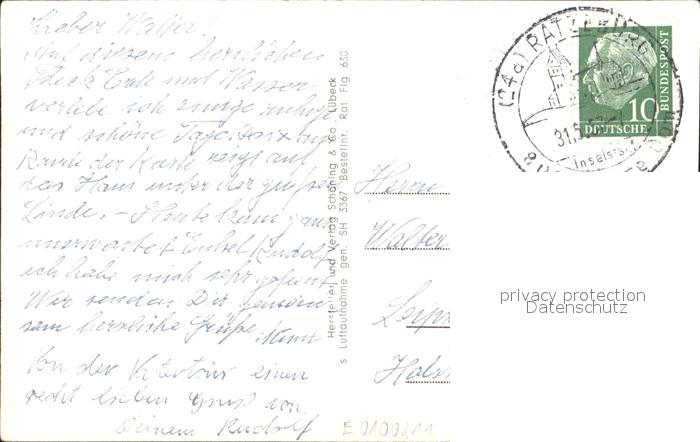 Lieber Walter!
Auf diesem herrlichen
Stück Erde und Wasser
verlebe ich einige ruhige
und schöne Tage.
Rande der Karte zeigt auf
das Haus unter der großen
Linde. - Heute kam ganz
unerwartet Onkel Rudolf
ich habe mich sehr gefreut
Wir senden Dir gemein
sam herzliche Grüße.
Von der einen
recht lieben Gruß von
Deinem Rudolf
Hersteller und Verlag Schöning & Co., Lübeck
s Luftaufnahme gen. SH 3367 Bestellnr. Rat Flg 630
(24a) RATZEBURG
31.5.
Inselstadt
10
DEUTSCHE
BUNDESPOST
Herrn
Walter
Leipz
Holst
privacy protection
Datenschutz
E0100811